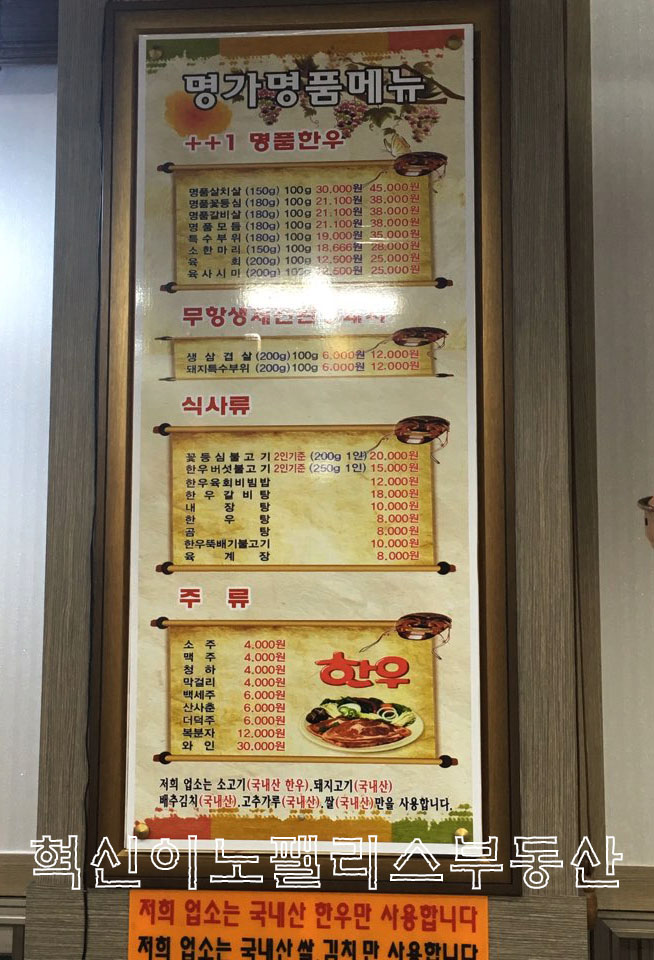 명가명품메뉴
++1 명품한우
명품살치살 (150g) 100g 30,000원 45,000원
명품꽃등심 (180g) 100g 21,100원 38,000원
명품갈비살 (180g) 100g 21,100원 38,000원
명품모듬 (180g) 100g 21,100원 38,000원
특수부위 (180g) 100g 19,000원 35,000원
소한마리 (150g) 100g 18,666원 28,000원
육 회 (200g) 100g 12,500원 25,000원
육사시마 (200g) 100g 12,500원 25,000원
무항생제
생삼겹살 (200g) 100g 6,000원 12,000원
돼지특수부위 (200g) 100g 6,000원 12,000원
식사류
꽃등심불고기 2인기준 (200g 1인) 20,000원
한우버섯불고기 2인기준 (250g 1인) 15,000원
한우육회비빔밥 12,000원
한우갈비탕 18,000원
내장탕 10,000원
한우탕 8,000원
곰탕 8,000원
한우뚝배기불고기 10,000원
육계장 8,000원
주 류
소주 4,000원
맥주 4,000원
청하 4,000원
막걸리 4,000원
백세주 6,000원
산사춘 6,000원
더덕주 6,000원
복분자 12,000원
와인 30,000원
한우
저희 업소는 소고기(국내산 한우),돼지고기(국내산)
배추김치(국내산),고추가루(국내산),쌀(국내산)만을 사용합니다.
혁신이노팰리스부동산
저희 업소는 국내산 한우만 사용합니다
저희 업소는 국내산 쌀,김치만 사용합니다